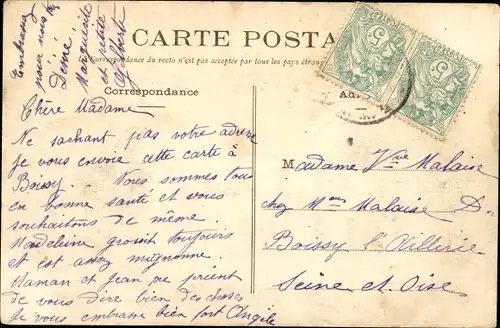 Embrassez
pour nous
Désiré
Marguerite
et petite
Alberte
CARTE POSTA
La Correspondance du recto n'est pas acceptée par tous les pays étran
Correspondance
Ad
5
5
Chère Madame
Ne sachant pas votre adresse
je vous envoie cette carte à
Boissy. Nous sommes tous
en bonne santé et vous
souhaitons de même.
Madeleine grossit toujours
et est assez mignonne
Maman et Jean me prient
de vous dire bien des choses
Je vous embrasse bien fort Angèle
Madame Vve Malaise
chez Mme Malaise D.
Boissy l'Aillerie
Seine et Oise